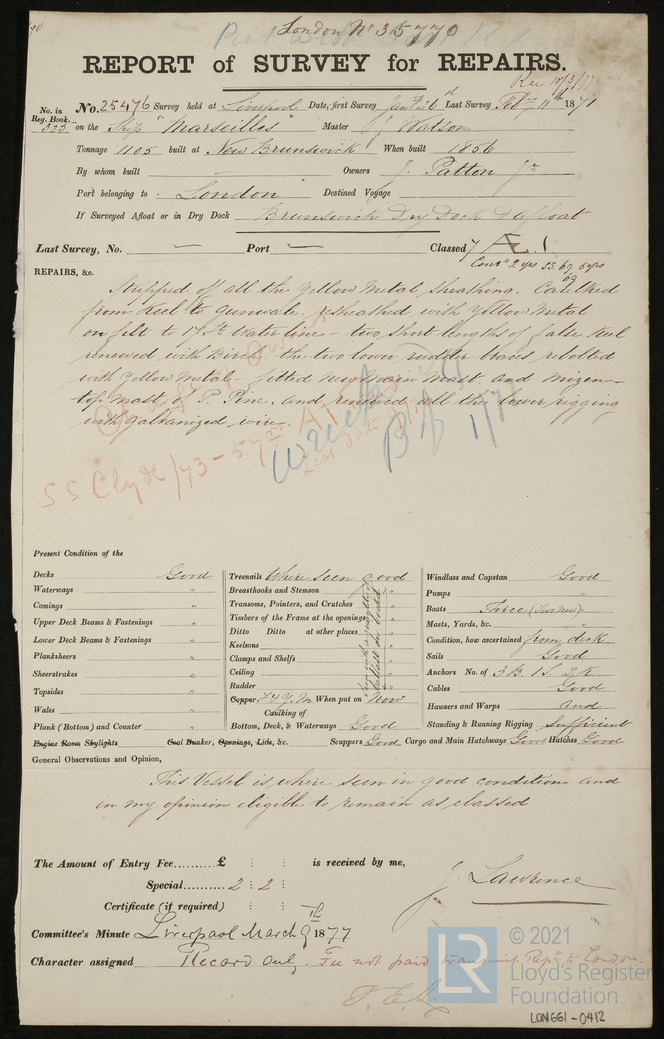 London No 35770
REPORT of SURVEY for REPAIRS.
No. in Reg. Book. 323
No. 25476 Survey held at Liverpool Date, first Survey Jany 26th Last Survey Feby 11th 1871
on the Ship "Marseilles" Master Watson
Tonnage 1105 built at New Brunswick When built 1856
By whom built Owners J. Patton Jr
Port belonging to London Destined Voyage
If Surveyed Afloat or in Dry Dock Brunswick Dry Dock & afloat
Last Survey, No. — Port — Classed Æ 1
Contd 2 yrs SS. 67 5 yrs
REPAIRS, &c.
Stripped off all the Yellow Metal sheathing. Caulked
from Keel to gunwale. resheathed with Yellow Metal
on felt to 17 ft Water line – two short lengths of false keel
renewed with Birch the two lower rudder braces rebolted
with Yellow Metal fitted new main mast and mizen
top mast of P. Pine, and renewed all the lower rigging
with galvanized wire.
SS Clyde/73 – 57
Wrecked
1/77
Present Condition of the
Decks Good
Waterways "
Comings "
Upper Deck Beams & Fastenings "
Lower Deck Beams & Fastenings "
Planksheers "
Sheerstrakes "
Topsides "
Wales "
Plank (Bottom) and Counter "
Engine Room Skylights
Treenails Where seen good
Breasthooks and Stemson "
Transoms, Pointers, and Crutches "
Timbers of the Frame at the openings "
Ditto Ditto at other places "
Keelsons "
Clamps and Shelfs "
Ceiling "
Rudder "
Copper F & Y.M When put on Now
Caulking of
Bottom, Deck, & Waterways Good
Coal Bunker, Openings, Lids, &c.
Windlass and Capstan Good
Pumps "
Boats Three (Two New)
Masts, Yards, &c. "
Condition, how ascertained from deck
Sails Good
Anchors No. of 3 B. 1 S. 2 K
Cables Good
Hawsers and Warps and
Standing & Running Rigging Sufficient
Scuppers Good Cargo and Main Hatchways Good Hatches Good
General Observations and Opinion,
This Vessel is where seen in good condition and
in my opinion eligible to remain as classed
The Amount of Entry Fee..........£ : : is received by me,
Special.......... 2 : 2 :
J. Lawrence
Certificate (if required) : :
Committee's Minute Liverpool March 9th 1877
Character assigned Record only. Fee not paid transmit Rept to London.
LR
© 2021
Lloyd's Register
Foundation
LON661-0412